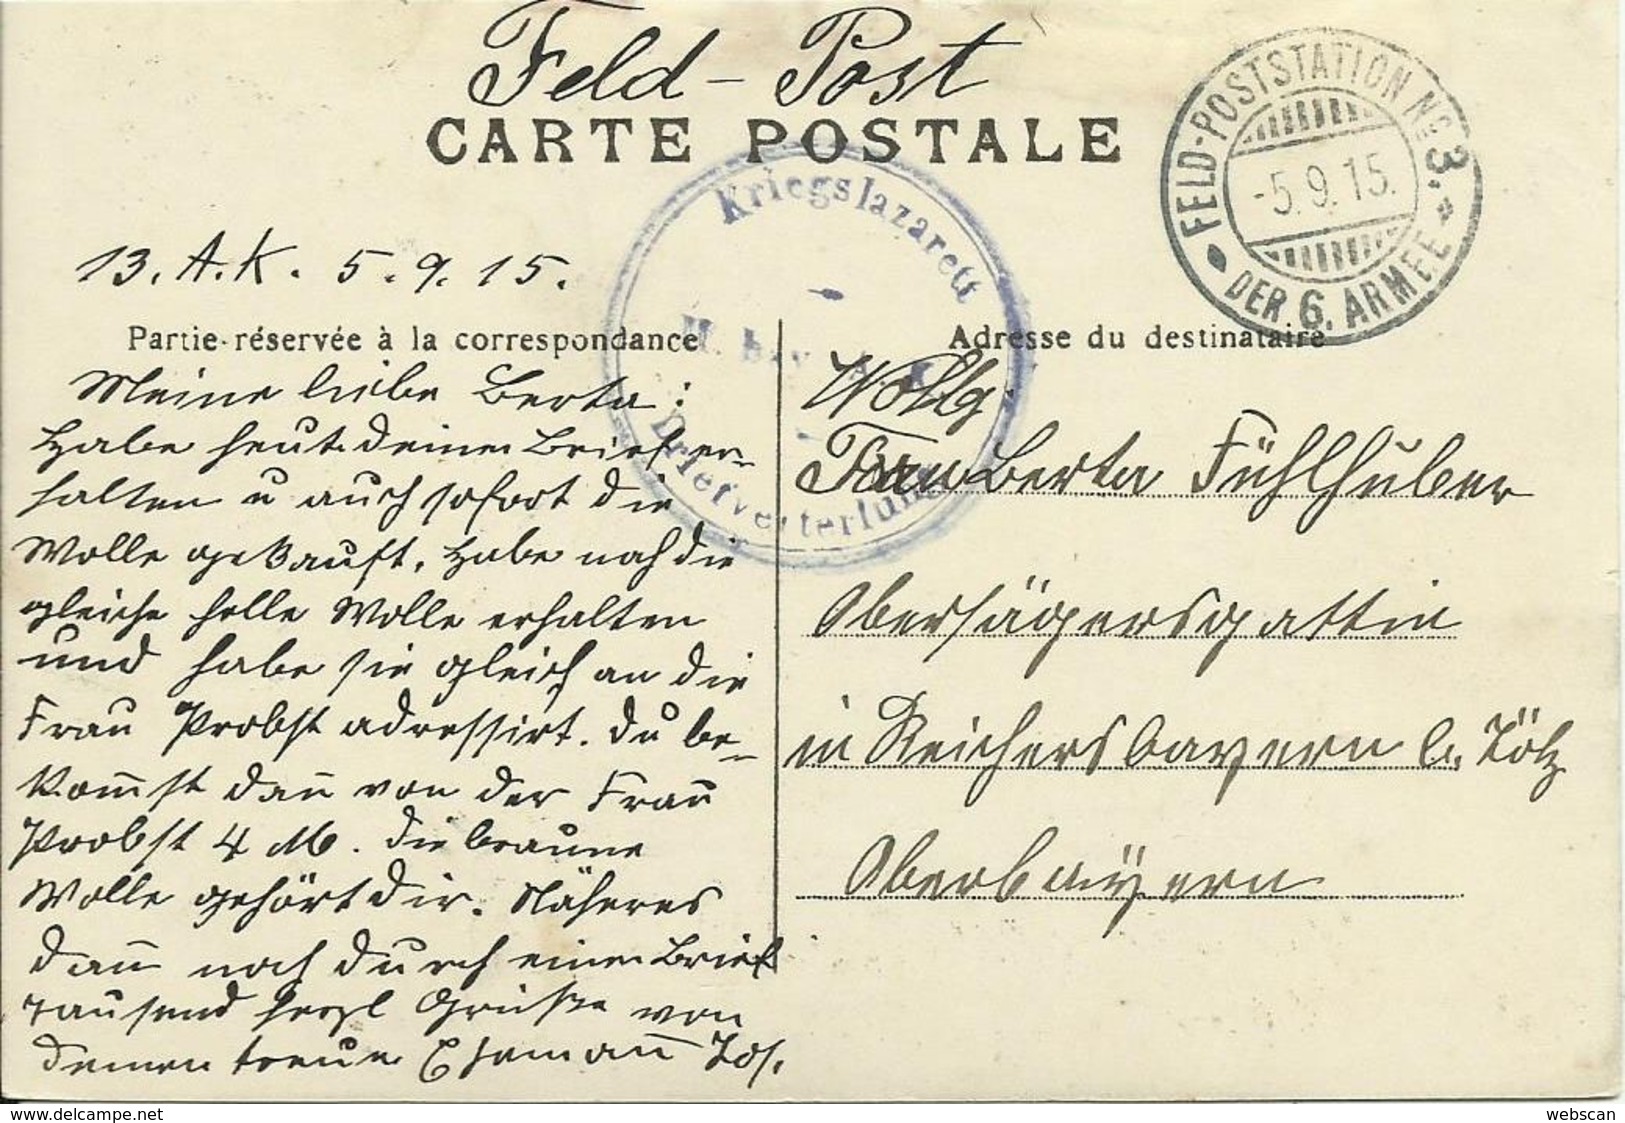 Feld-Post
CARTE POSTALE
FELD-POSTSTATION No. 3.
-5.9.15.
DER 6. ARMEE
Kriegslazarett
Briefverteilung
13. A.K. 5.9.15.
Partie réservée à la correspondance
Adresse du destinataire
Meine liebe Berta:
Habe heut deinen Brief er-
halten u auch sofort die
Wolle gekauft. Habe noch die
gleiche helle Wolle erhalten
und habe sie gleich an die
Frau Probst adressirt. Du be-
kom̅st dan̅ von der Frau
Probst 4 M. die braune
Wolle gehört dir. Näheres
dan̅ noch durch einen Brief
tausend herzl Grüße von
deinen treuen Eheman̅ Jos.
Wollg.
Frau Berta Fühlhuber
Obersägersgattin
in Reichersbayern b. Tölz
Oberbayern
www.delcampe.net
webscan